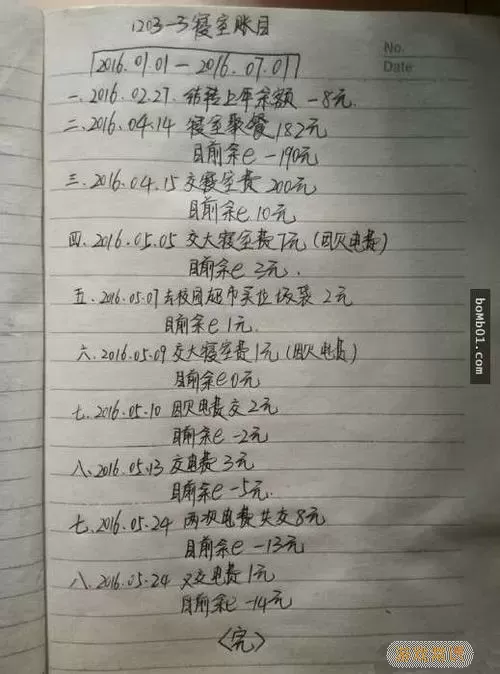 1203-3寝室账目
No.
Date
2016.01.01 — 2016.07.01
一.2016.02.27. 结转上年余额 -8元.
二.2016.04.14 寝室聚餐 182元
目前余e -190元
三.2016.04.15 交寝室费 200元
目前余e 10元
四.2016.05.05 交大寝室费7元(因欠电费)
目前余e 3元.
五.2016.05.07 去校园超市买垃圾袋 2元
目前余e 1元.
六.2016.05.09 交大寝室费1元(因欠电费)
目前余e 0元
七.2016.05.10 因欠电费交2元
目前余e -2元
八.2016.05.13 交电费 3元
目前余e -5元.
七.2016.05.24 两次电费共交8元
目前余e -13元
八.2016.05.24 又交电费1元
目前余e -14元
<完>
bomb01.com